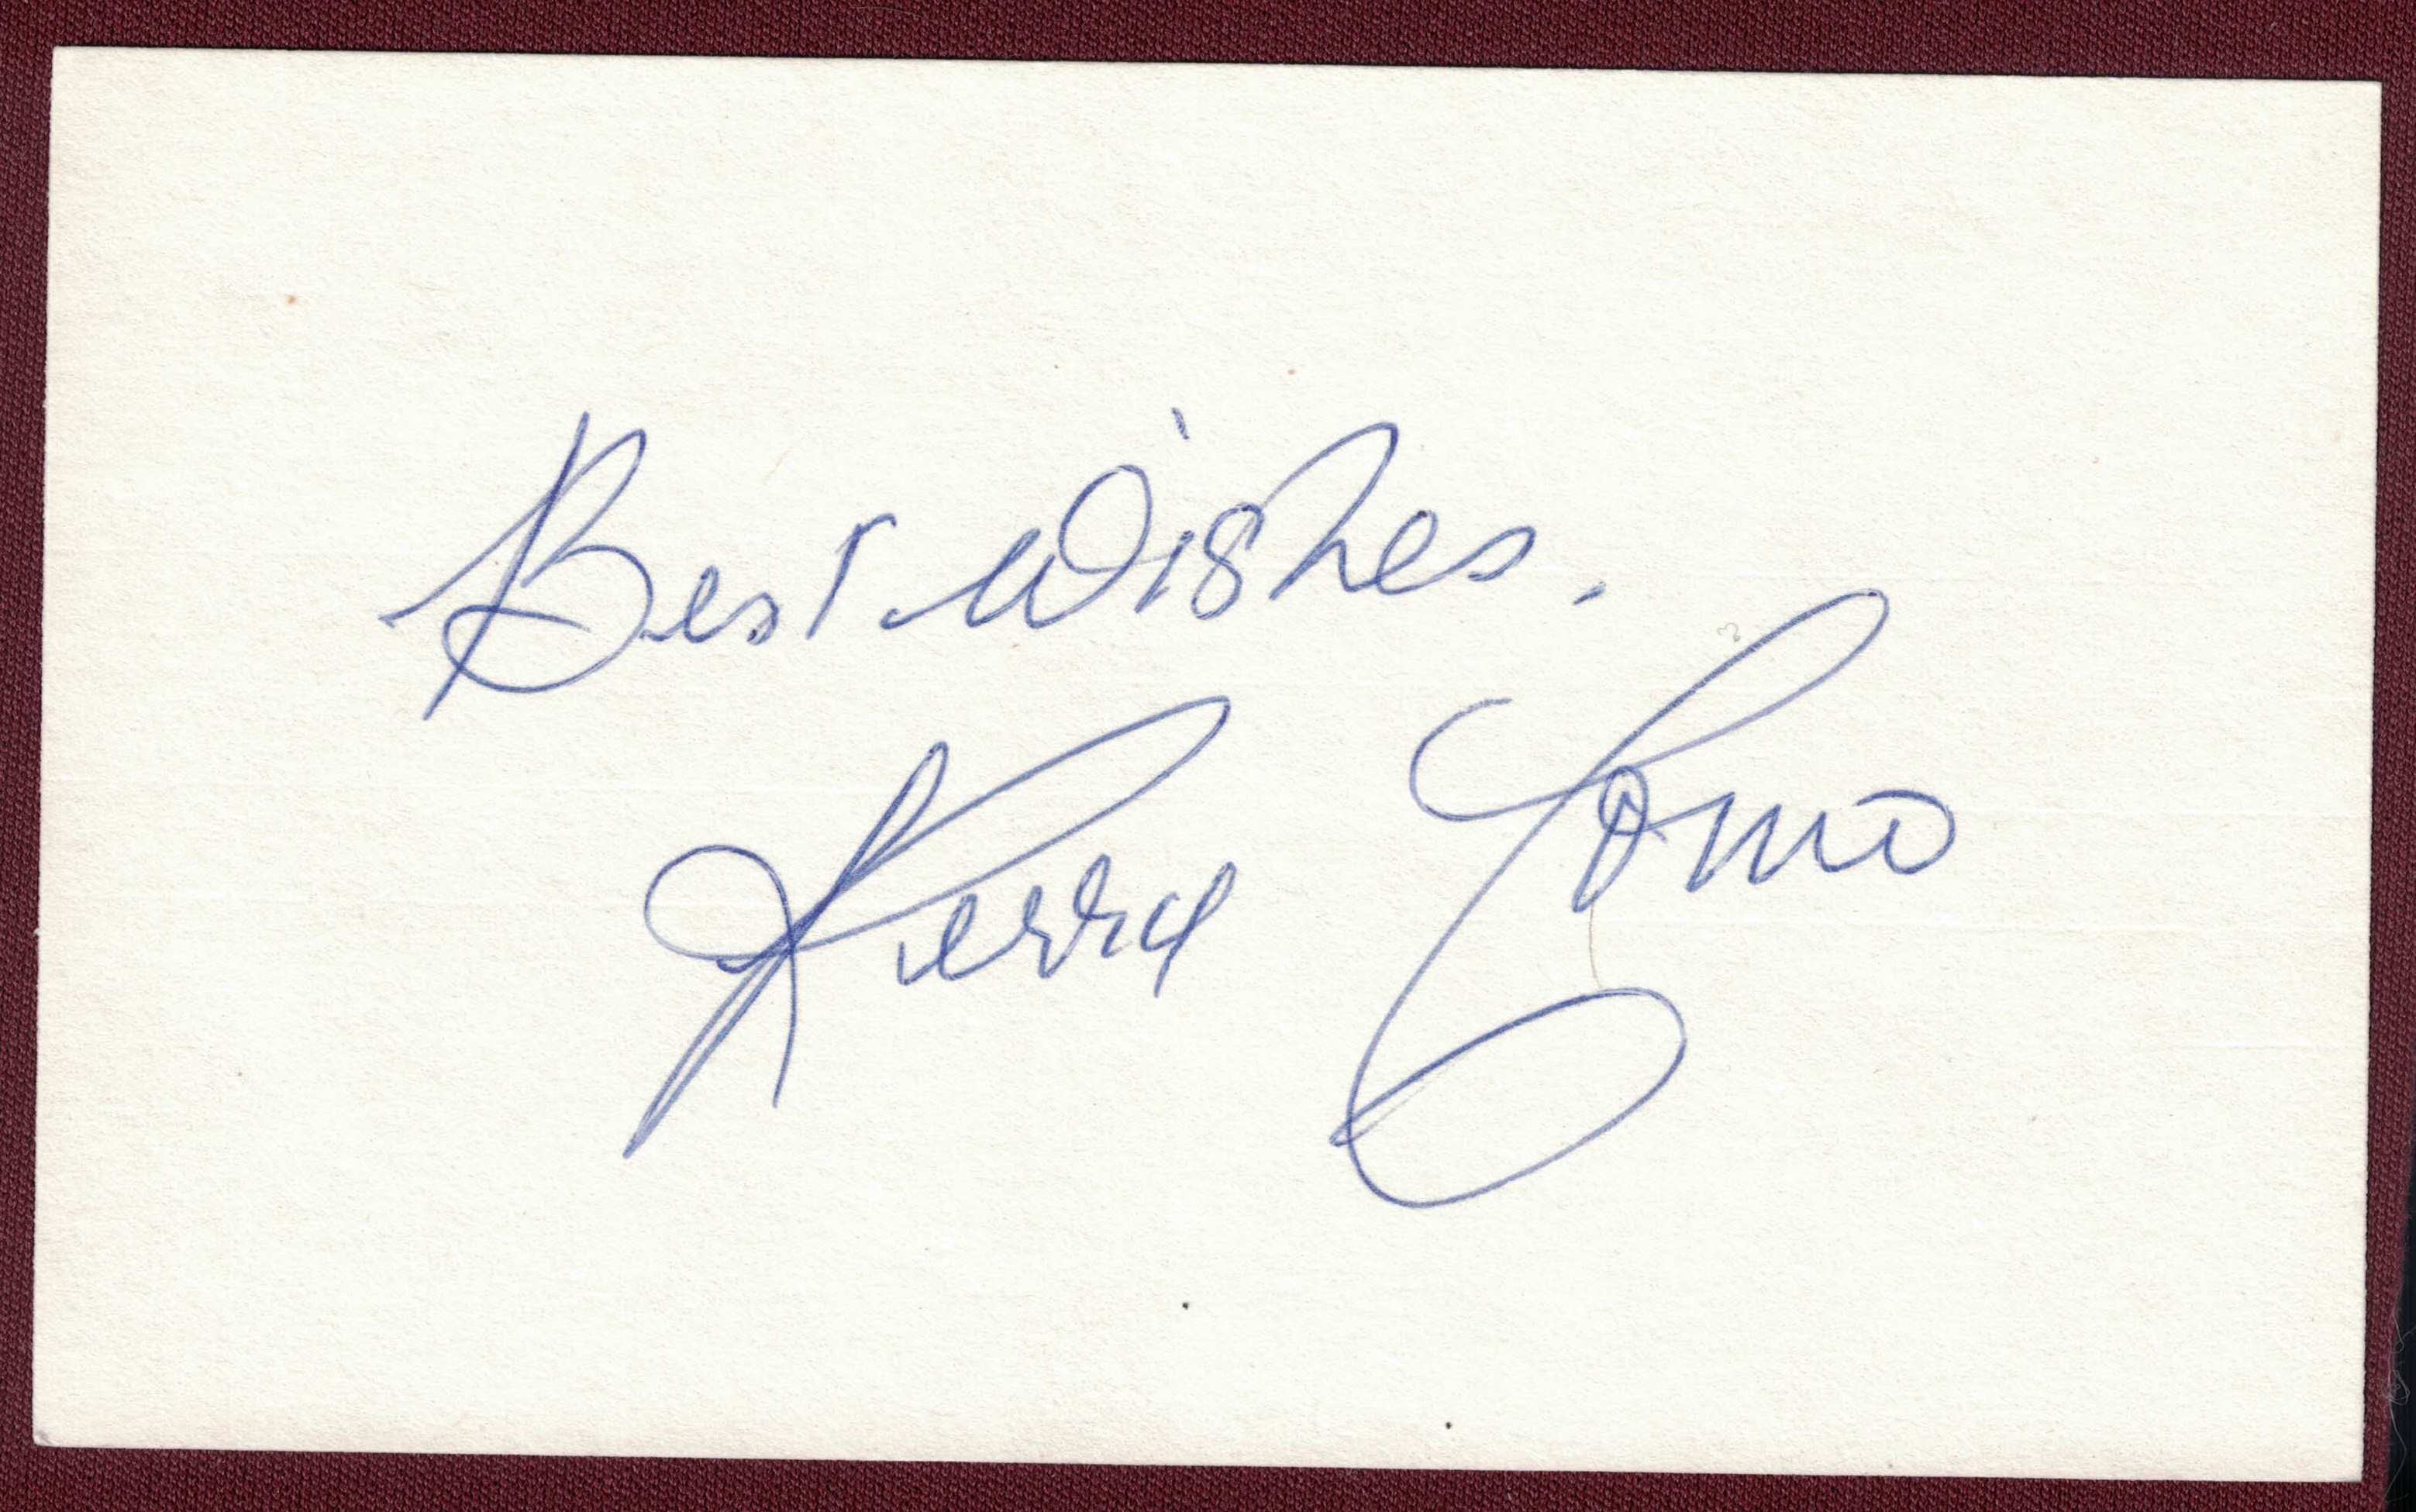 Best Wishes.
Perry Como